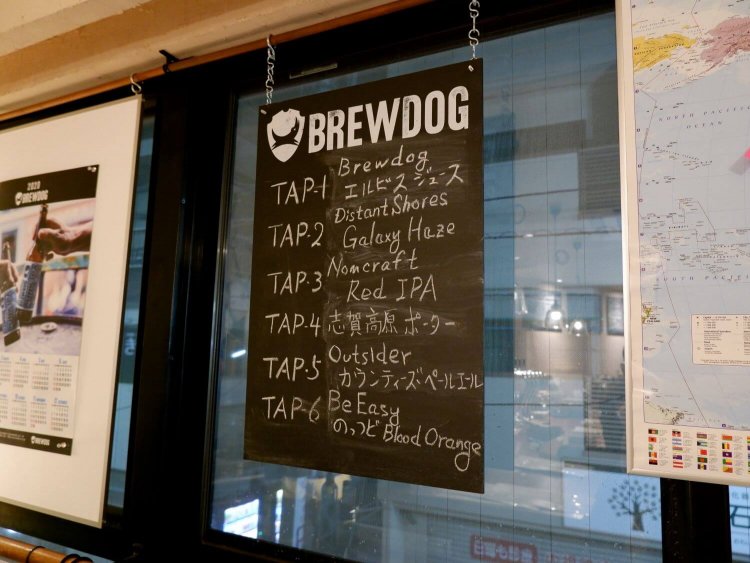 BREWDOG
TAP-1 Brewdog
エルビスジュース
TAP-2 Distant Shores
Galaxy Haze
TAP-3 Nomcraft
Red IPA
TAP-4 志賀高原ポーター
TAP-5 Outsider
カウンティーズ・ペールエール
TAP-6 Be Easy
のっつど Blood Orange
2020
BREWDOG
NORTH PACIFIC
OCEAN
SOUTH PACIFIC